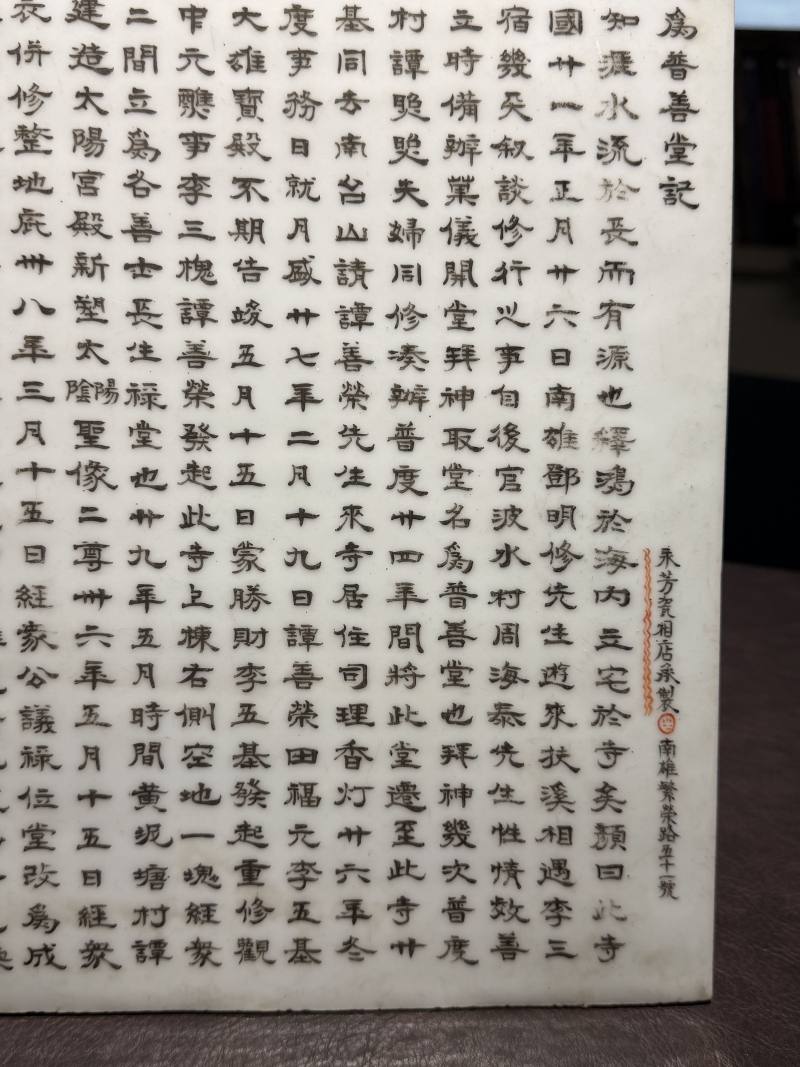 為普善堂記
永芳瓷相店承製 南雄繁榮路五十一號
知滙水流於長而有源也繹鴻於海內立宅於寺矣顏曰此寺
國廿一年正月廿六日南雄鄧明修先生遊來扶溪相遇李三
宿幾天叙談修行之事自後官波水村周海泰先生性情效善
立時備辦菓儀開堂拜神取堂名為普善堂也拜神幾次普度
村譚曌曌夫婦同修湊辦普度廿四年間將此堂遷至此寺廿
基同去南台山請譚善榮先生來寺居住司理香灯廿六年冬
度事務日就月盛廿七年二月十九日譚善榮田福元李五基
大雄寶殿不期告竣五月十五日蒙勝財李五基發起重修觀
中元醮事李三槐譚善榮發起此寺上棟右側空地一塊經衆
二間立為各善士長生祿堂也卅九年五月時間黄坭塘村譚
建造太陽宮殿新塑太陰陽聖像二尊卅六年五月十五日經衆
衣併修整地庇卅八年三月十五日經衆公議祿位堂改為成